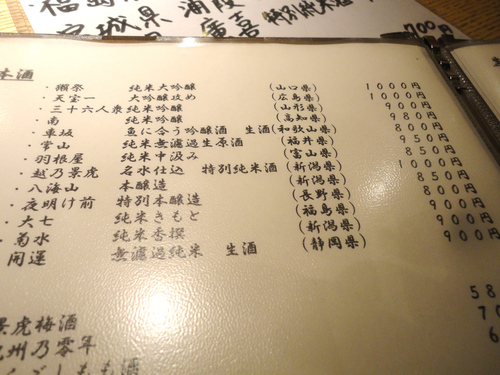 福島
宮城県 浦霞
廣喜 特別純米酒
700円
本酒
・獺祭 純米大吟醸 (山口県) 1000円
・天宝一 大吟醸攻め (広島県) 1000円
・三十六人衆 純米吟醸 (山形県) 900円
・南 純米吟醸 (高知県) 980円
・車坂 魚に合う吟醸酒 生酒 (和歌山県) 800円
・常山 純米無濾過生原酒 (福井県) 950円
・羽根屋 純米中汲み (富山県) 850円
・越乃景虎 名水仕込 特別純米酒 (新潟県) 1000円
・八海山 本醸造 (新潟県) 850円
・夜明け前 特別本醸造 (長野県) 800円
・大七 純米きもと (福島県) 900円
・菊水 純米香撰 (新潟県) 900円
・開運 無濾過純米 生酒 (静岡県) 900円
景虎梅酒 58
州乃零年 70
しもも酒 6